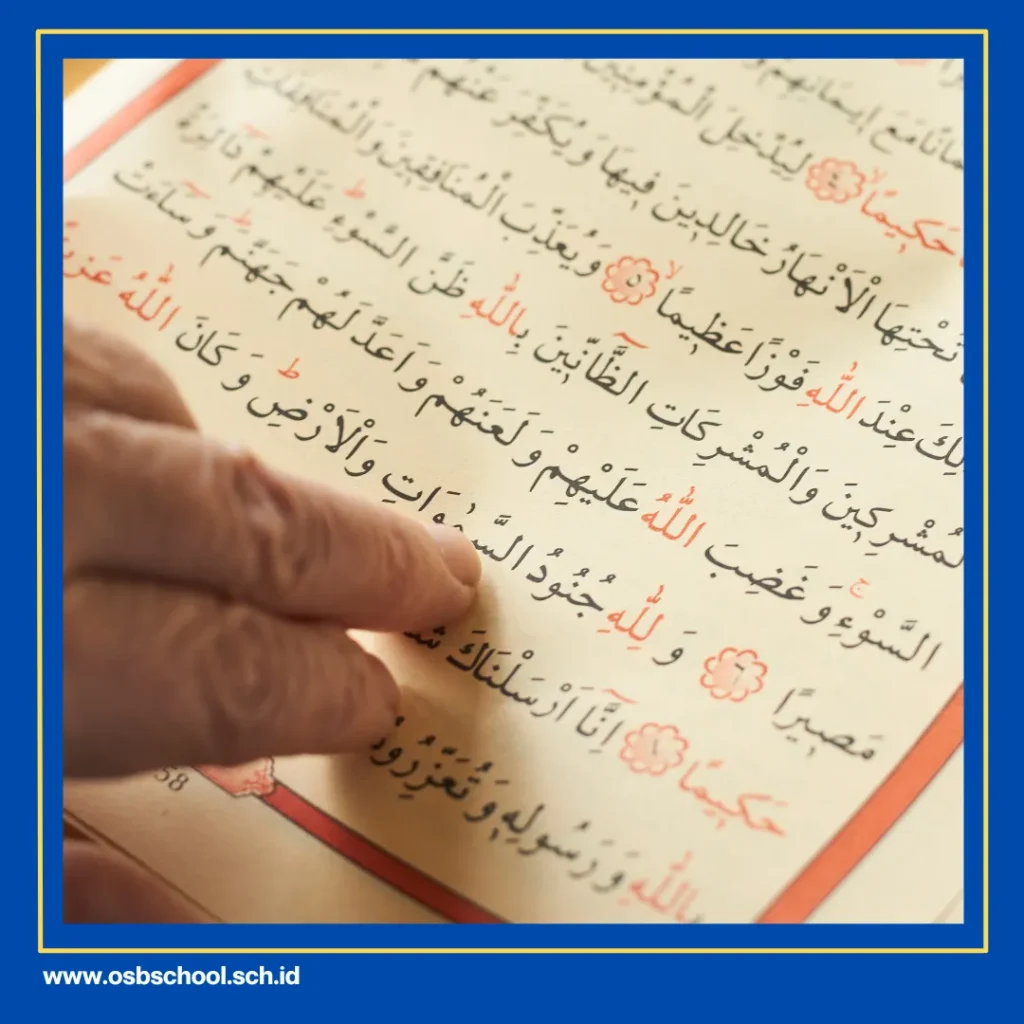 اِيمَانِهِمْ
حَكِيمًا ٤ لِيُدْخِلَ الْمُؤْمِنِينَ
تَحْتِهَا الْاَنْهَارُ خَالِدِينَ فِيهَا وَيُكَفِّرَ عَنْهُمْ
عِنْدَ اللّٰهِ فَوْزًا عَظِيمًا ٥ وَيُعَذِّبَ الْمُنَافِقِينَ وَالْمُنَافِقَاتِ
وَالْمُشْرِكَاتِ الظَّانِّينَ بِاللّٰهِ ظَنَّ السَّوْءِ عَلَيْهِمْ دَائِرَةُ
السَّوْءِ وَغَضِبَ اللّٰهُ عَلَيْهِمْ وَلَعَنَهُمْ وَاَعَدَّ لَهُمْ جَهَنَّمَ وَسَاءَتْ
مَصِيرًا ٦ وَلِلّٰهِ جُنُودُ السَّمٰوَاتِ وَالْاَرْضِ وَكَانَ اللّٰهُ
حَكِيمًا اِنَّا اَرْسَلْنَاكَ
بِاللّٰهِ وَرَسُولِهِ
www.osbschool.sch.id